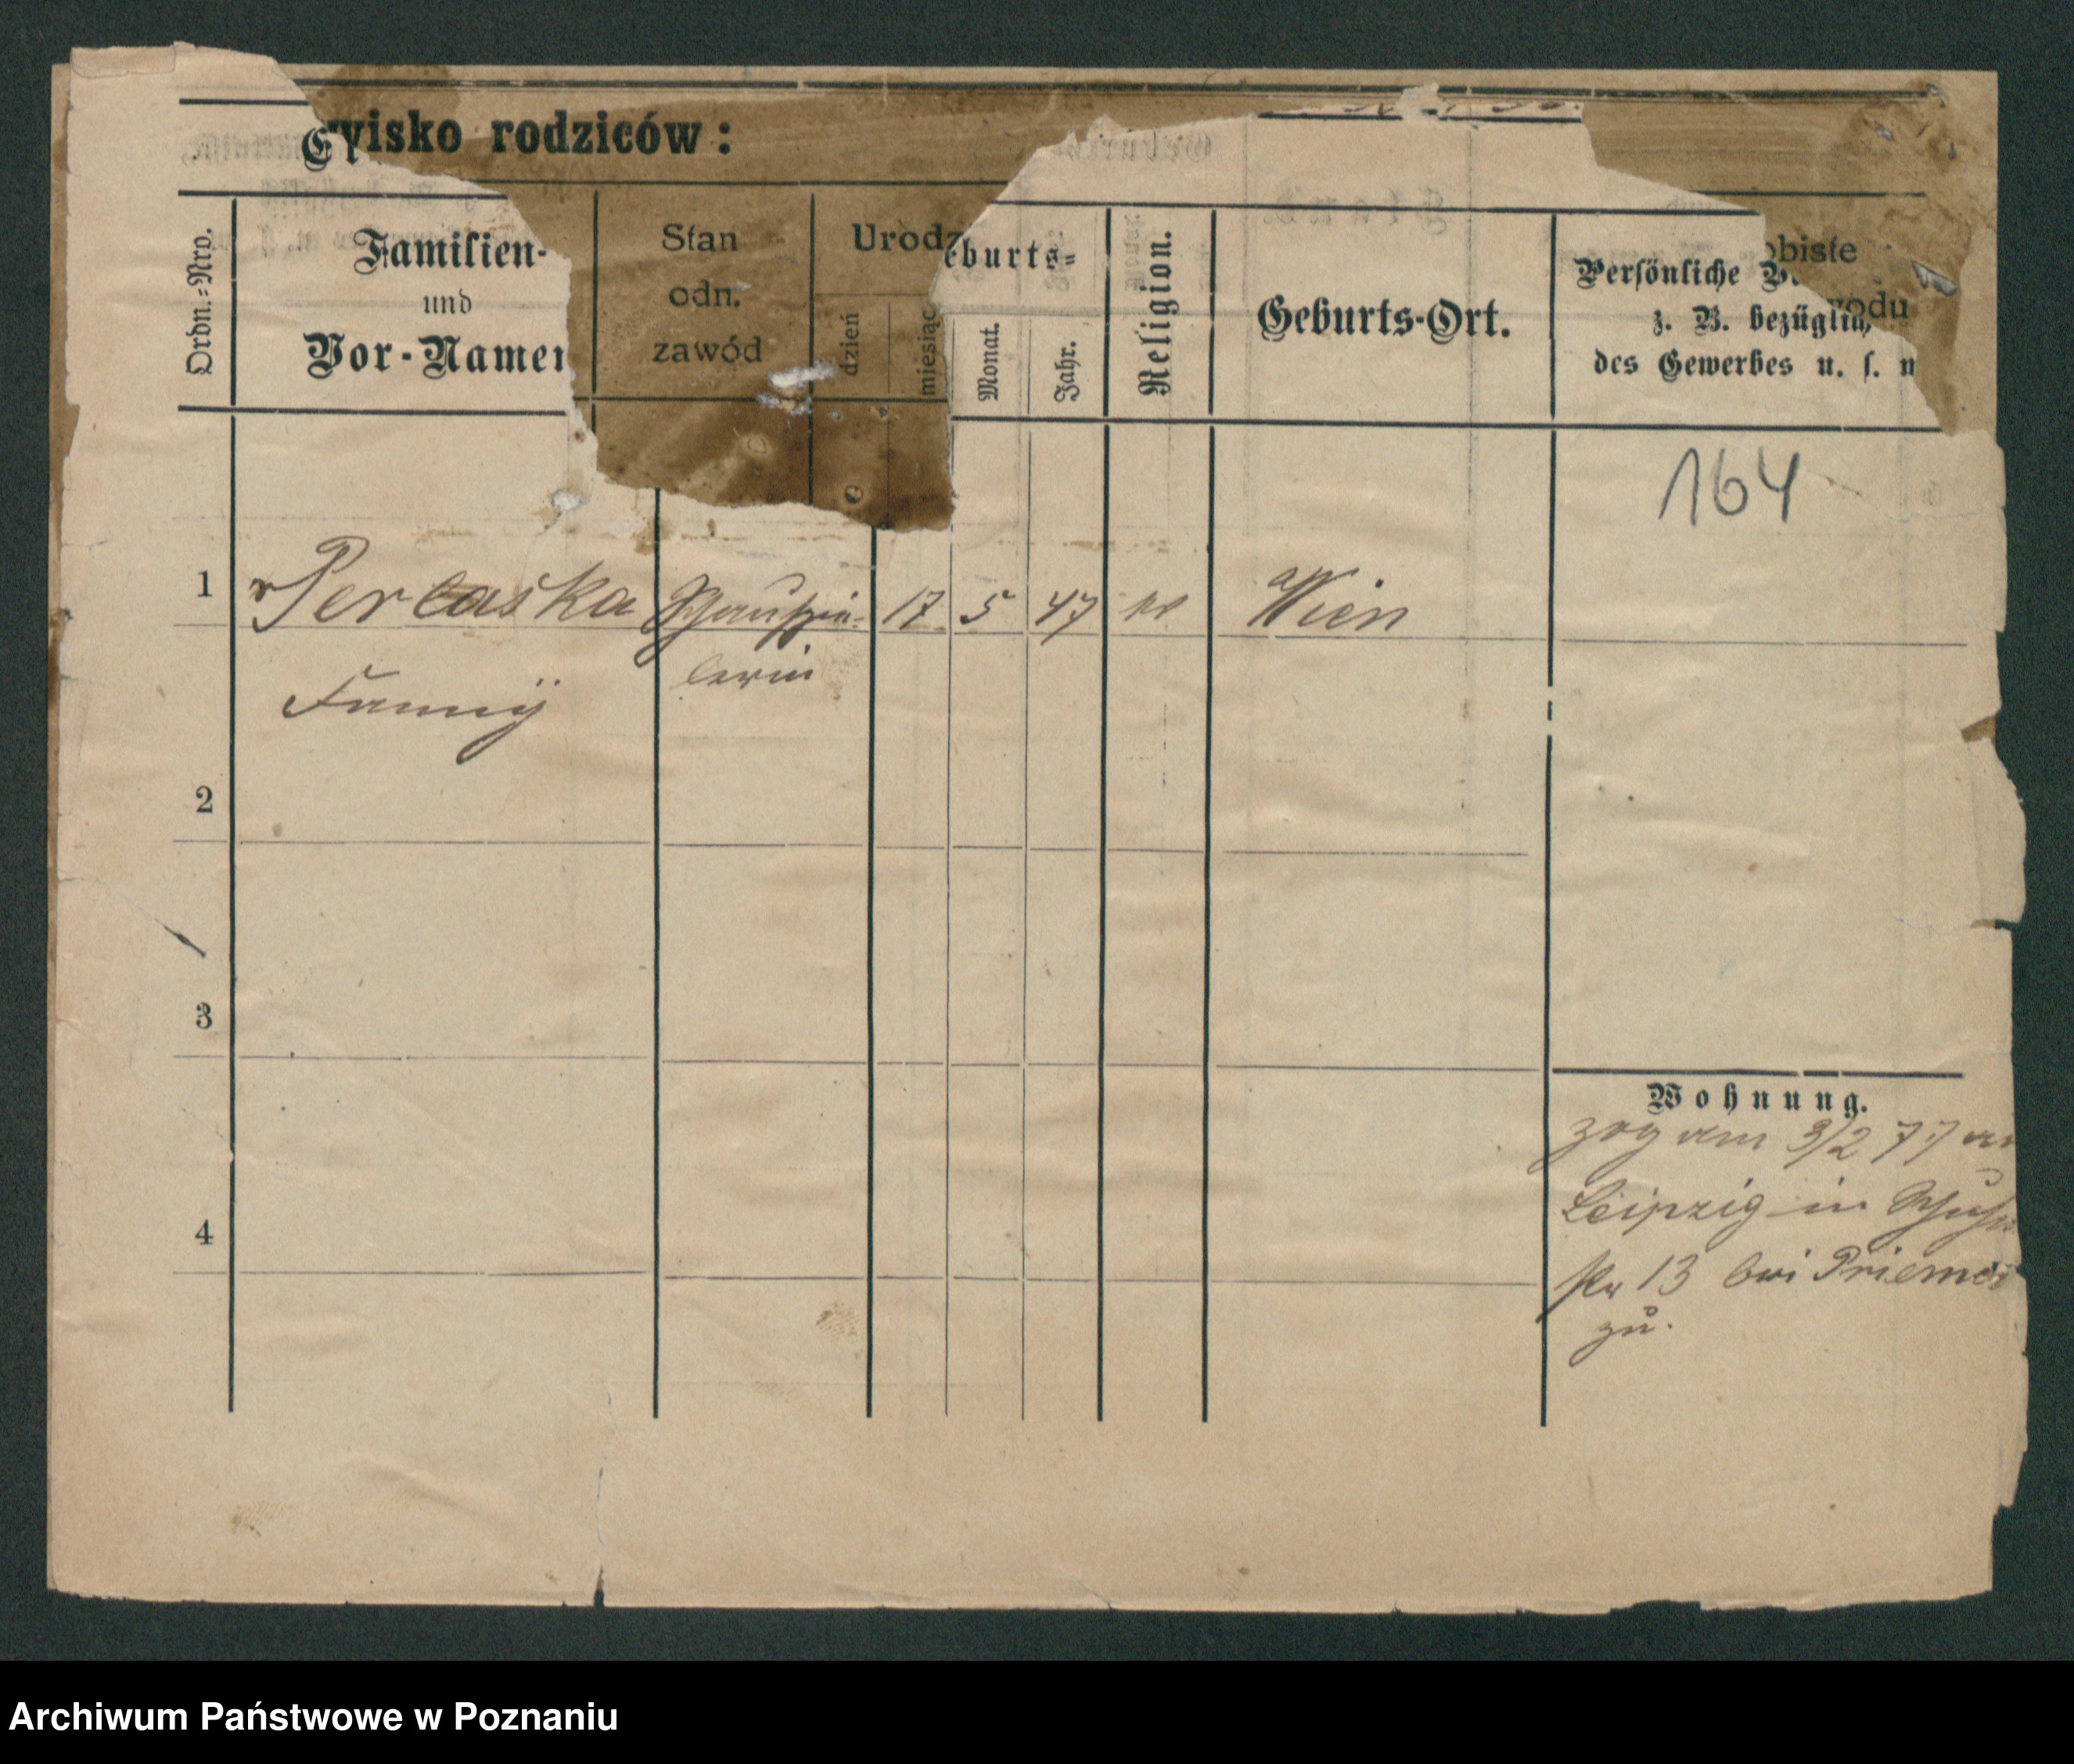 wisko rodziców:
Ordn.=Nro.
Familien-
und
Vor-Namen
Stan
odn.
zawód
Urodz
dzień
miesiąc
eburts=
Monat.
Jahr.
Religion.
Geburts-Ort.
obiste
Persönliche
wodu
z. B. bezüglich
des Gewerbes u. s. w
164
1
Percaska Schauspie- 17 5 47 Wien
lerin
Fanny
2
3
4
Wohnung.
zog am 3/2 77 an
Leipzig in
13 bei Priemer
zu.
Archiwum Państwowe w Poznaniu